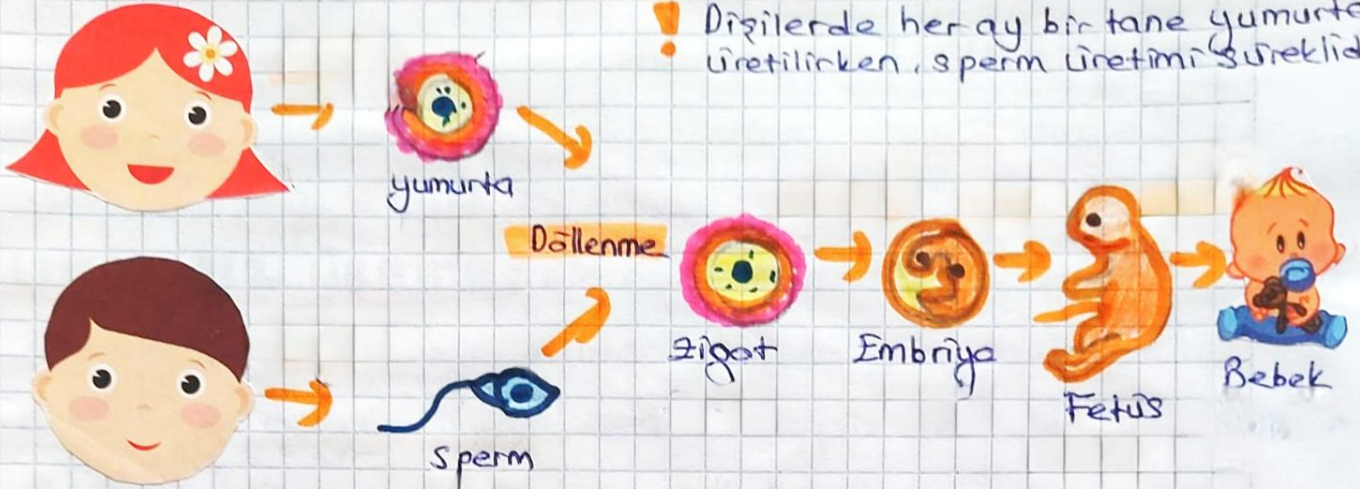 ! Dişilerde her ay bir tane yumurta
üretilirken, sperm üretimi sürekli
yumurta
Döllenme
Zigot
Embriyo
Fetüs
Bebek
sperm